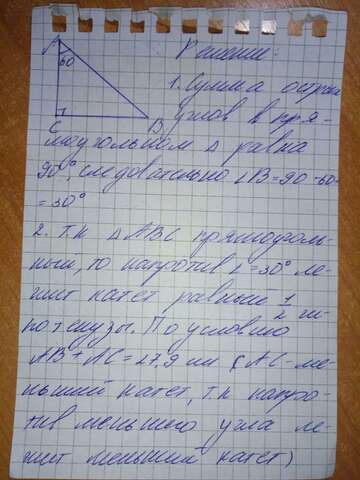 A
60
C
B
Решение:
1. Сумма острых
углов в пря-
моугольном Δ равна
90°, следовательно ∠B=90-60=
=30°
2. Т.к Δ ABC прямоуголь-
ный, то напротив ∠=30° ле-
жит катет равный 1/2 ги-
потенузы. По условию
AB+AC=27,9 см (AC-ме-
ньший катет, т.к напро-
тив меньшего угла ле-
жит меньший катет)